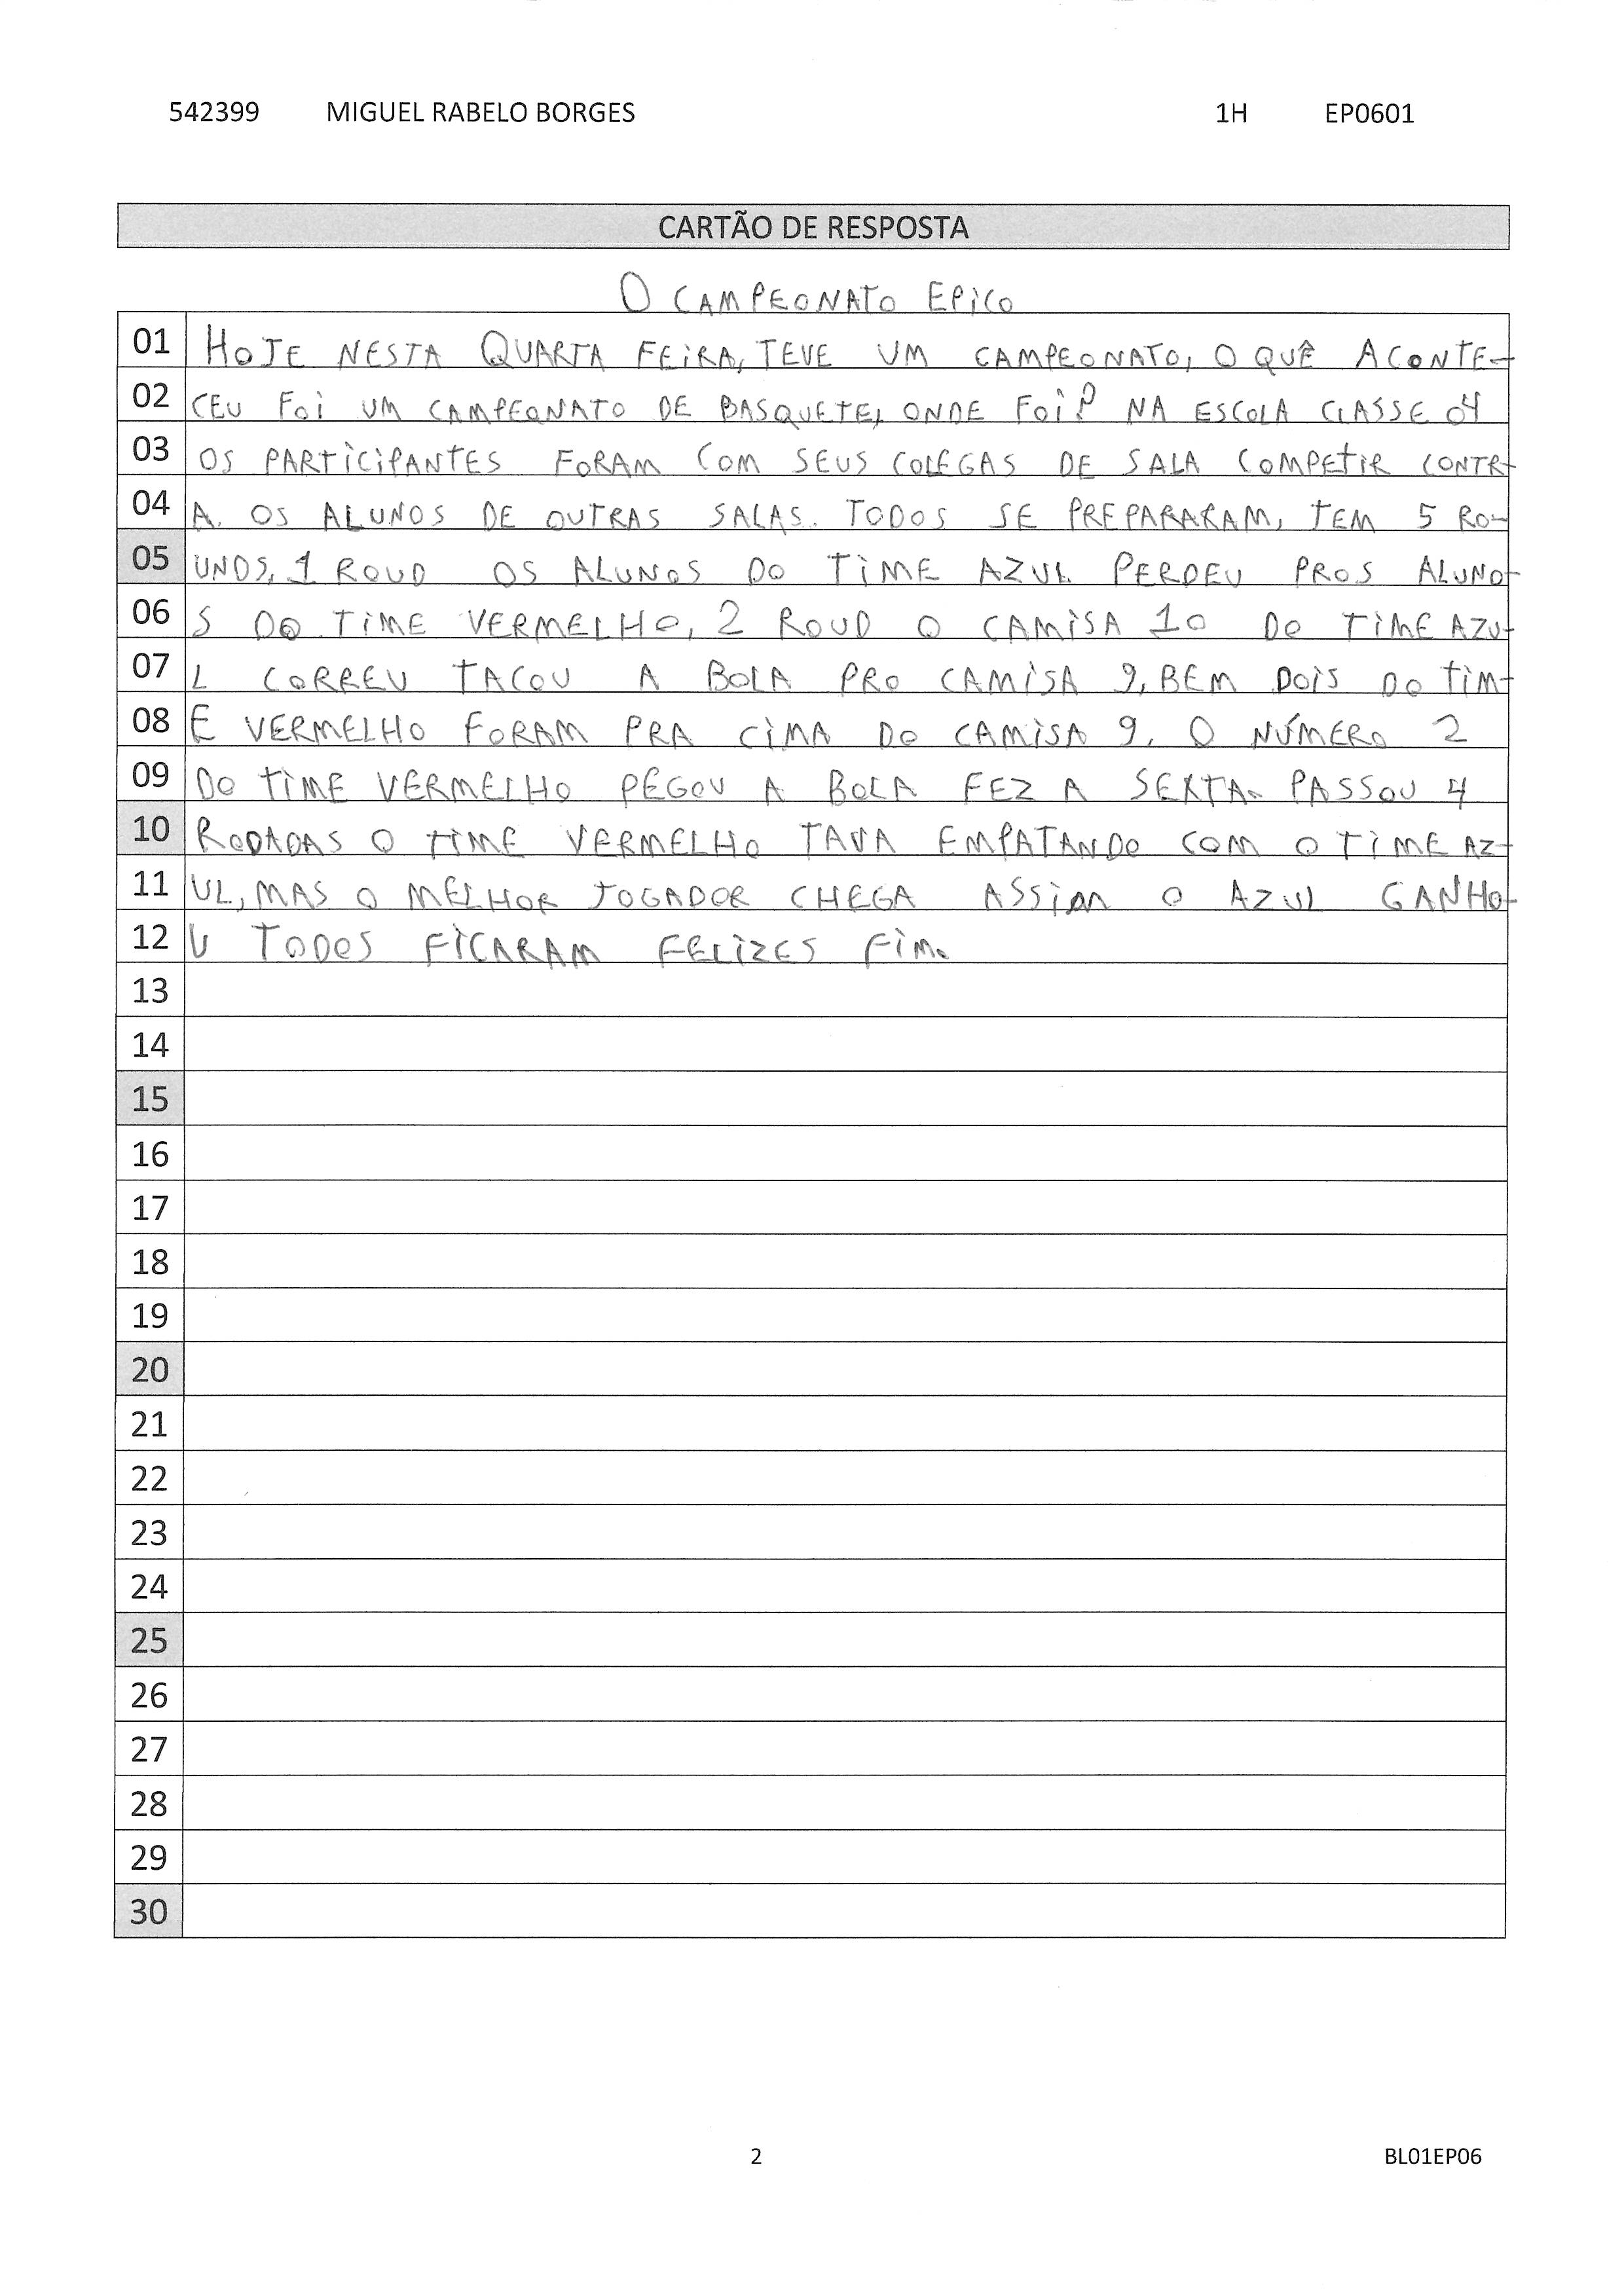 542399 MIGUEL RABELO BORGES 1H EP0601
CARTÃO DE RESPOSTA
O CAMPEONATO EPICO
01 HOJE NESTA QUARTA FEIRA, TEVE UM CAMPEONATO, O QUÊ ACONTE-
02 CEU FOI UM CAMPEONATO DE BASQUETE, ONDE FOI? NA ESCOLA CLASSE 04
03 OS PARTICIPANTES FORAM COM SEUS COLEGAS DE SALA COMPETIR CONTR-
04 A. OS ALUNOS DE OUTRAS SALAS. TODOS SE PREPARARAM, TEM 5 RO-
05 UNDS, 1 ROUD OS ALUNOS DO TIME AZUL PERDEU PROS ALUNO-
06 S DO TIME VERMELHO, 2 ROUD O CAMISA 10 DO TIME AZU-
07 L CORREU TACOU A BOLA PRO CAMISA 9, BEM DOIS DO TIM-
08 E VERMELHO FORAM PRA CIMA DO CAMISA 9. O NÚMERO 2
09 DO TIME VERMELHO PEGOU A BOLA FEZ A SEXTA. PASSOU 4
10 RODADAS O TIME VERMELHO TAVA EMPATANDO COM O TIME AZ-
11 UL, MAS O MELHOR JOGADOR CHEGA ASSIM O AZUL GANHO-
12 U TODOS FICARAM FELIZES FIM.
13
14
15
16
17
18
19
20
21
22
23
24
25
26
27
28
29
30
2 BL01EP06